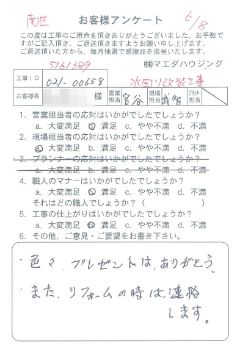 南区 お客様アンケート 6/8
この度は工事のご用命を頂きありがとうございました。お手数で
すがご記入頂き、ご返送頂きますようお願い申し上げます。
ご返送頂いた方から、毎月抽選で感謝品を進呈いたします。
5161389 ㈱マエダハウジング
工事ID 021-00658 水廻り改装工事
お客様名 様 営業担当 現場担当 プラン担当
1. 営業担当者の応対はいかがでしたでしょうか?
a. 大変満足 b. 満足 c. やや不満 d. 不満
2. 現場担当者の応対はいかがでしたでしょうか?
a. 大変満足 b. 満足 c. やや不満 d. 不満
3. プランナーの応対はいかがでしたでしょうか?
a. 大変満足 b. 満足 c. やや不満 d. 不満
4. 職人のマナーはいかがでしたでしょうか?
a. 大変満足 b. 満足 c. やや不満 d. 不満
それはどの職人でしょうか?( )
5. 工事の仕上がりはいかがでしたでしょうか?
a. 大変満足 b. 満足 c. やや不満 d. 不満
6. その他、ご意見・ご要望をお書き下さい。
・色々プレゼントは、ありがとう。
・また、リフォームの時は、連絡
します。